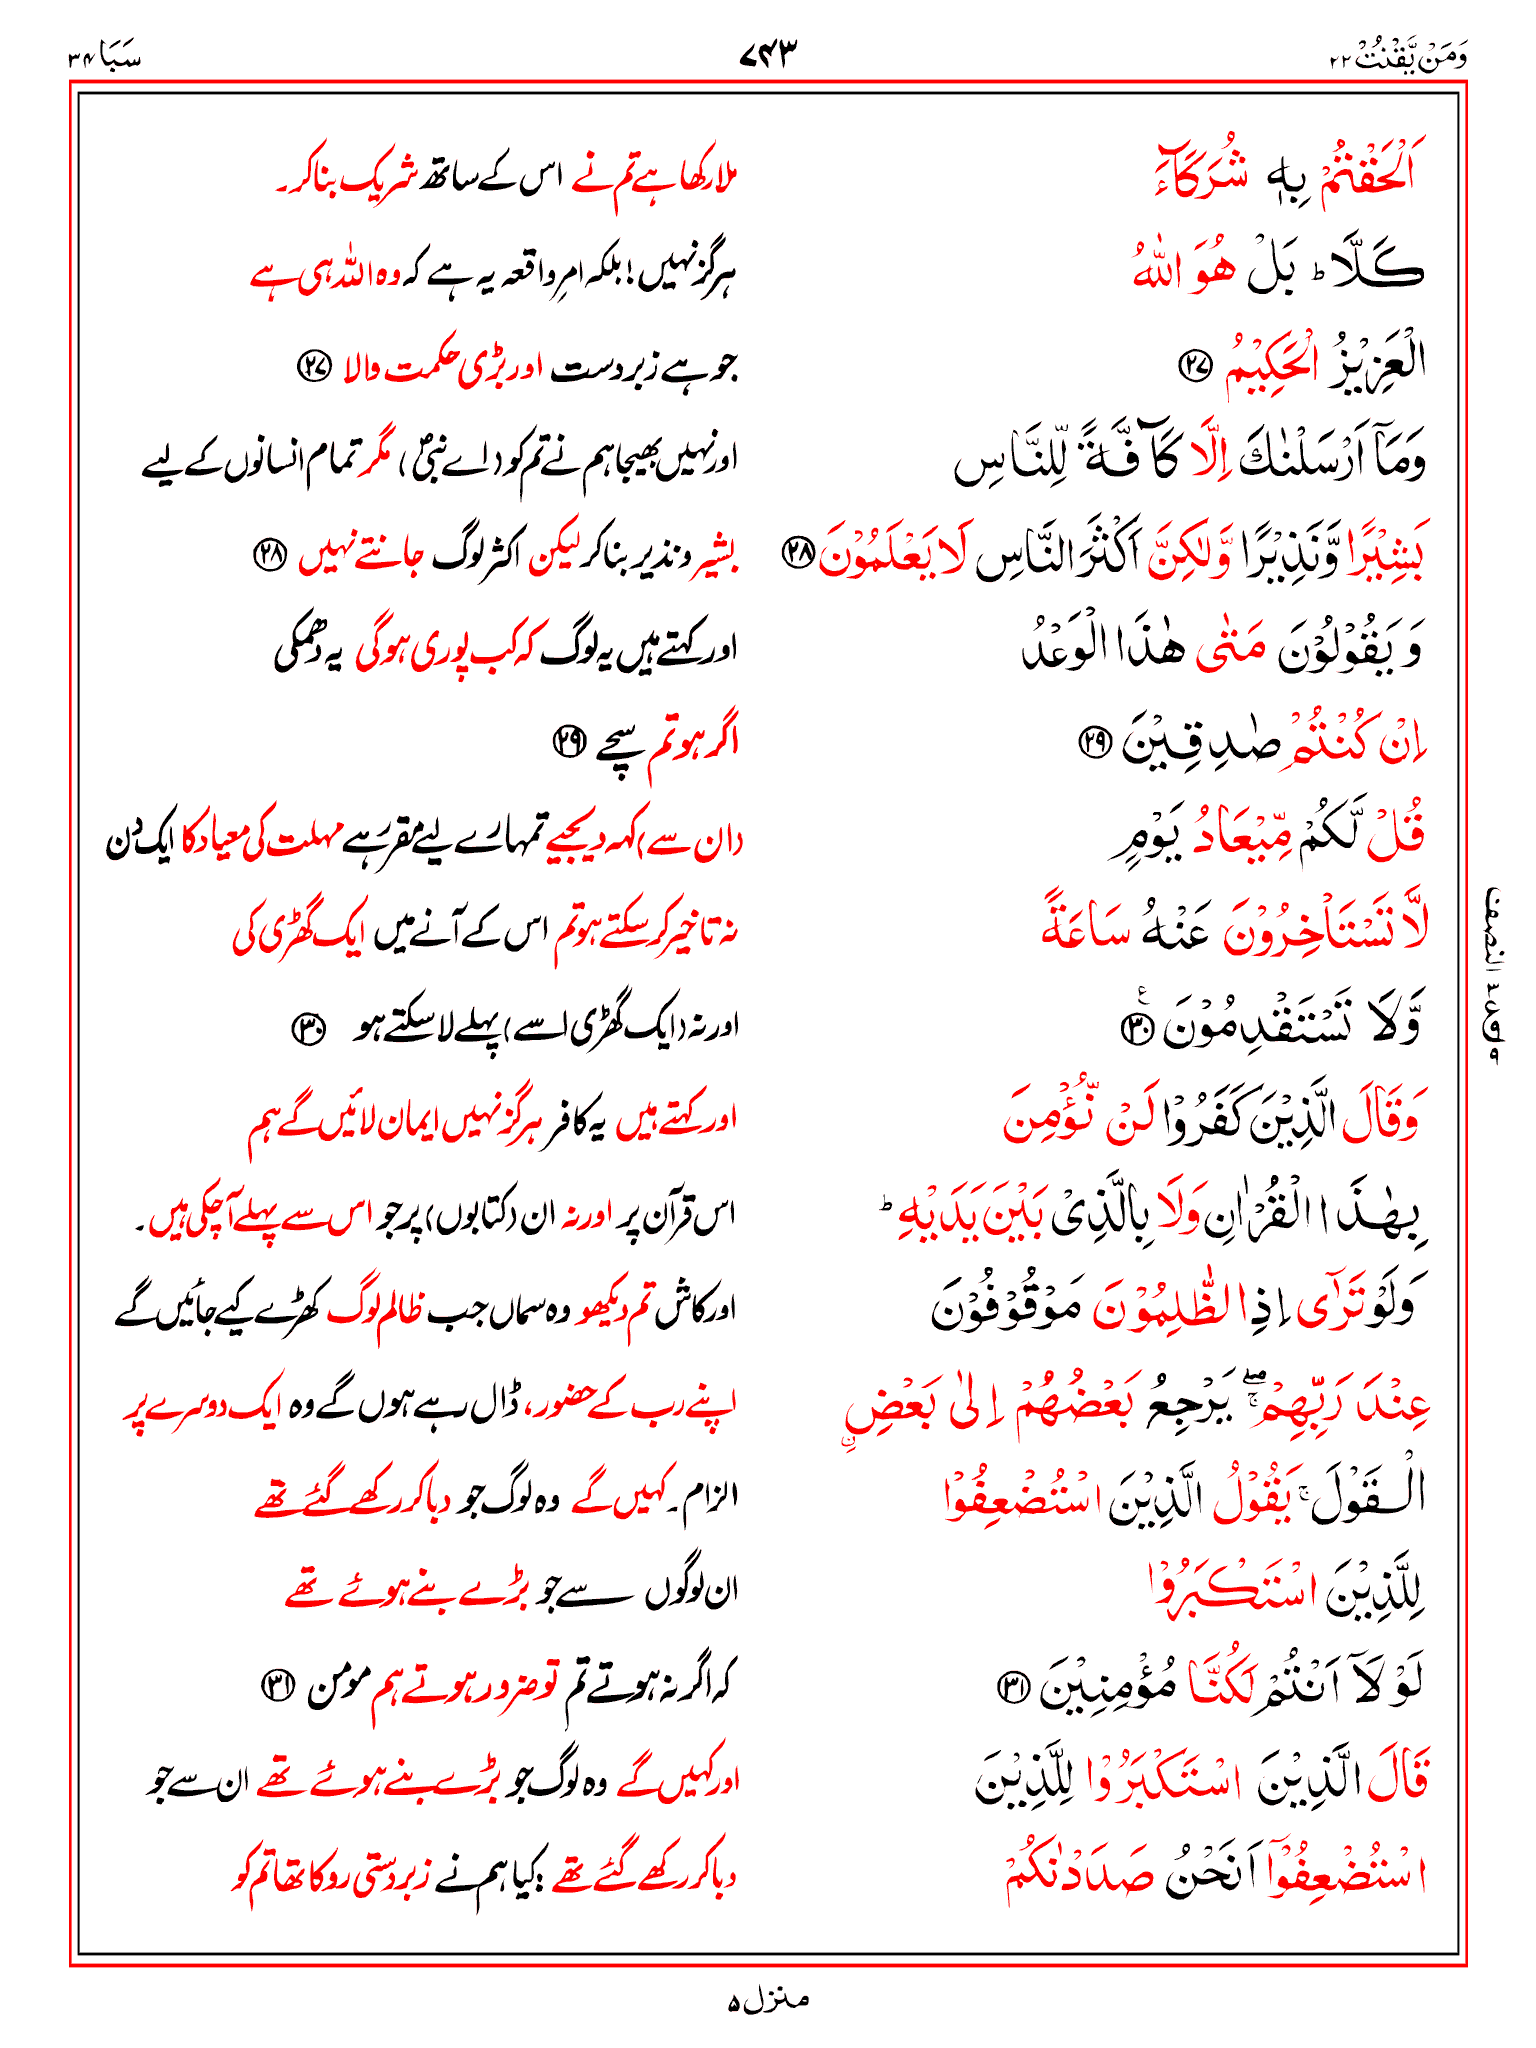 وَمَنْ يَّقْنُتْ ۲۲
۷۴۳
سَبَا ۳۴
اَلْحَقْتُمْ بِهٖ شُرَكَآءَ
ملا رکھا ہے تم نے اس کے ساتھ شریک بنا کر۔
كَلَّا ؕ بَلْ هُوَ اللّٰهُ
ہرگز نہیں! بلکہ امرِ واقعہ یہ ہے کہ وہ اللہ ہی ہے
الْعَزِيْزُ الْحَكِيْمُ ۲۷
جو ہے زبردست اور بڑی حکمت والا ۲۷
وَمَاۤ اَرْسَلْنٰكَ اِلَّا كَآفَّةً لِّلنَّاسِ
اور نہیں بھیجا ہم نے تم کو (اے نبیؐ) مگر تمام انسانوں کے لیے
بَشِيْرًا وَّنَذِيْرًا وَّلٰكِنَّ اَكْثَرَ النَّاسِ لَا يَعْلَمُوْنَ ۲۸
بشیر و نذیر بنا کر لیکن اکثر لوگ جانتے نہیں ۲۸
وَ يَقُوْلُوْنَ مَتٰى هٰذَا الْوَعْدُ
اور کہتے ہیں یہ لوگ کہ کب پوری ہوگی یہ دھمکی
اِنْ كُنْتُمْ صٰدِقِيْنَ ۲۹
اگر ہو تم سچے ۲۹
قُلْ لَّكُمْ مِّيْعَادُ يَوْمٍ
(ان سے) کہہ دیجیے تمہارے لیے مقرر ہے مہلت کی میعاد کا ایک دن
لَّا تَسْتَاْخِرُوْنَ عَنْهُ سَاعَةً
نہ تاخیر کر سکتے ہو تم اس کے آنے میں ایک گھڑی کی
وَّلَا تَسْتَقْدِمُوْنَ ۳۰
اور نہ (ایک گھڑی اسے) پہلے لا سکتے ہو ۳۰
وَقَالَ الَّذِيْنَ كَفَرُوْا لَنْ نُّؤْمِنَ
اور کہتے ہیں یہ کافر ہرگز نہیں ایمان لائیں گے ہم
بِهٰذَا الْقُرْاٰنِ وَلَا بِالَّذِىْ بَيْنَ يَدَيْهِ ؕ
اس قرآن پر اور نہ ان (کتابوں) پر جو اس سے پہلے آچکی ہیں۔
وَلَوْ تَرٰٓى اِذِ الظّٰلِمُوْنَ مَوْقُوْفُوْنَ
اور کاش تم دیکھو وہ سماں جب ظالم لوگ کھڑے کیے جائیں گے
عِنْدَ رَبِّهِمْ ۖۚ يَرْجِعُ بَعْضُهُمْ اِلٰى بَعْضِ ۨ
اپنے رب کے حضور، ڈال رہے ہوں گے وہ ایک دوسرے پر
الْقَوْلَ ۚ يَقُوْلُ الَّذِيْنَ اسْتُضْعِفُوْا
الزام۔ کہیں گے وہ لوگ جو دبا کر رکھے گئے تھے
لِلَّذِيْنَ اسْتَكْبَرُوْا
ان لوگوں سے جو بڑے بنے ہوئے تھے
لَوْلَاۤ اَنْتُمْ لَكُنَّا مُؤْمِنِيْنَ ۳۱
کہ اگر نہ ہوتے تم تو ضرور ہوتے ہم مومن ۳۱
قَالَ الَّذِيْنَ اسْتَكْبَرُوْا لِلَّذِيْنَ
اور کہیں گے وہ لوگ جو بڑے بنے ہوئے تھے ان سے جو
اسْتُضْعِفُوْۤا اَنَحْنُ صَدَدْنٰكُمْ
دبا کر رکھے گئے تھے ؛ کیا ہم نے زبردستی روکا تھا تم کو
منزل ۵